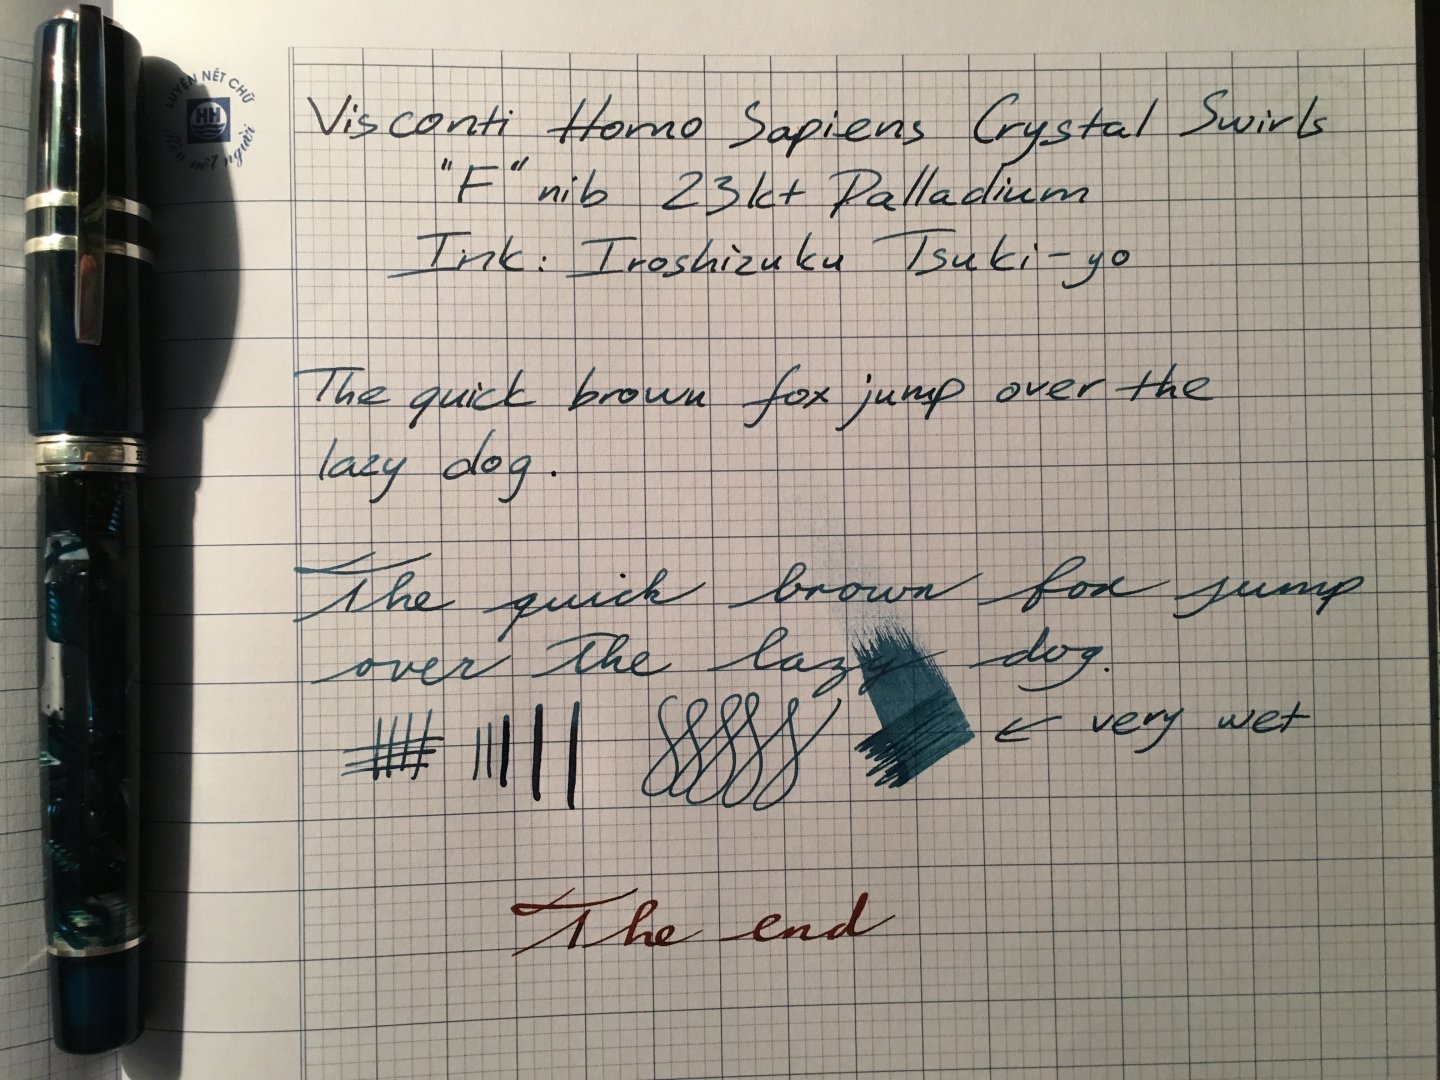 LUYỆN NÉT CHỮ
HH
Rèn nết người
Visconti Homo Sapiens Crystal Swirls
"F" nib 23kt Palladium
Ink: Iroshizuku Tsuki-yo
The quick brown fox jump over the
lazy dog.
The quick brown fox jump
over the lazy dog.
← very wet
The end